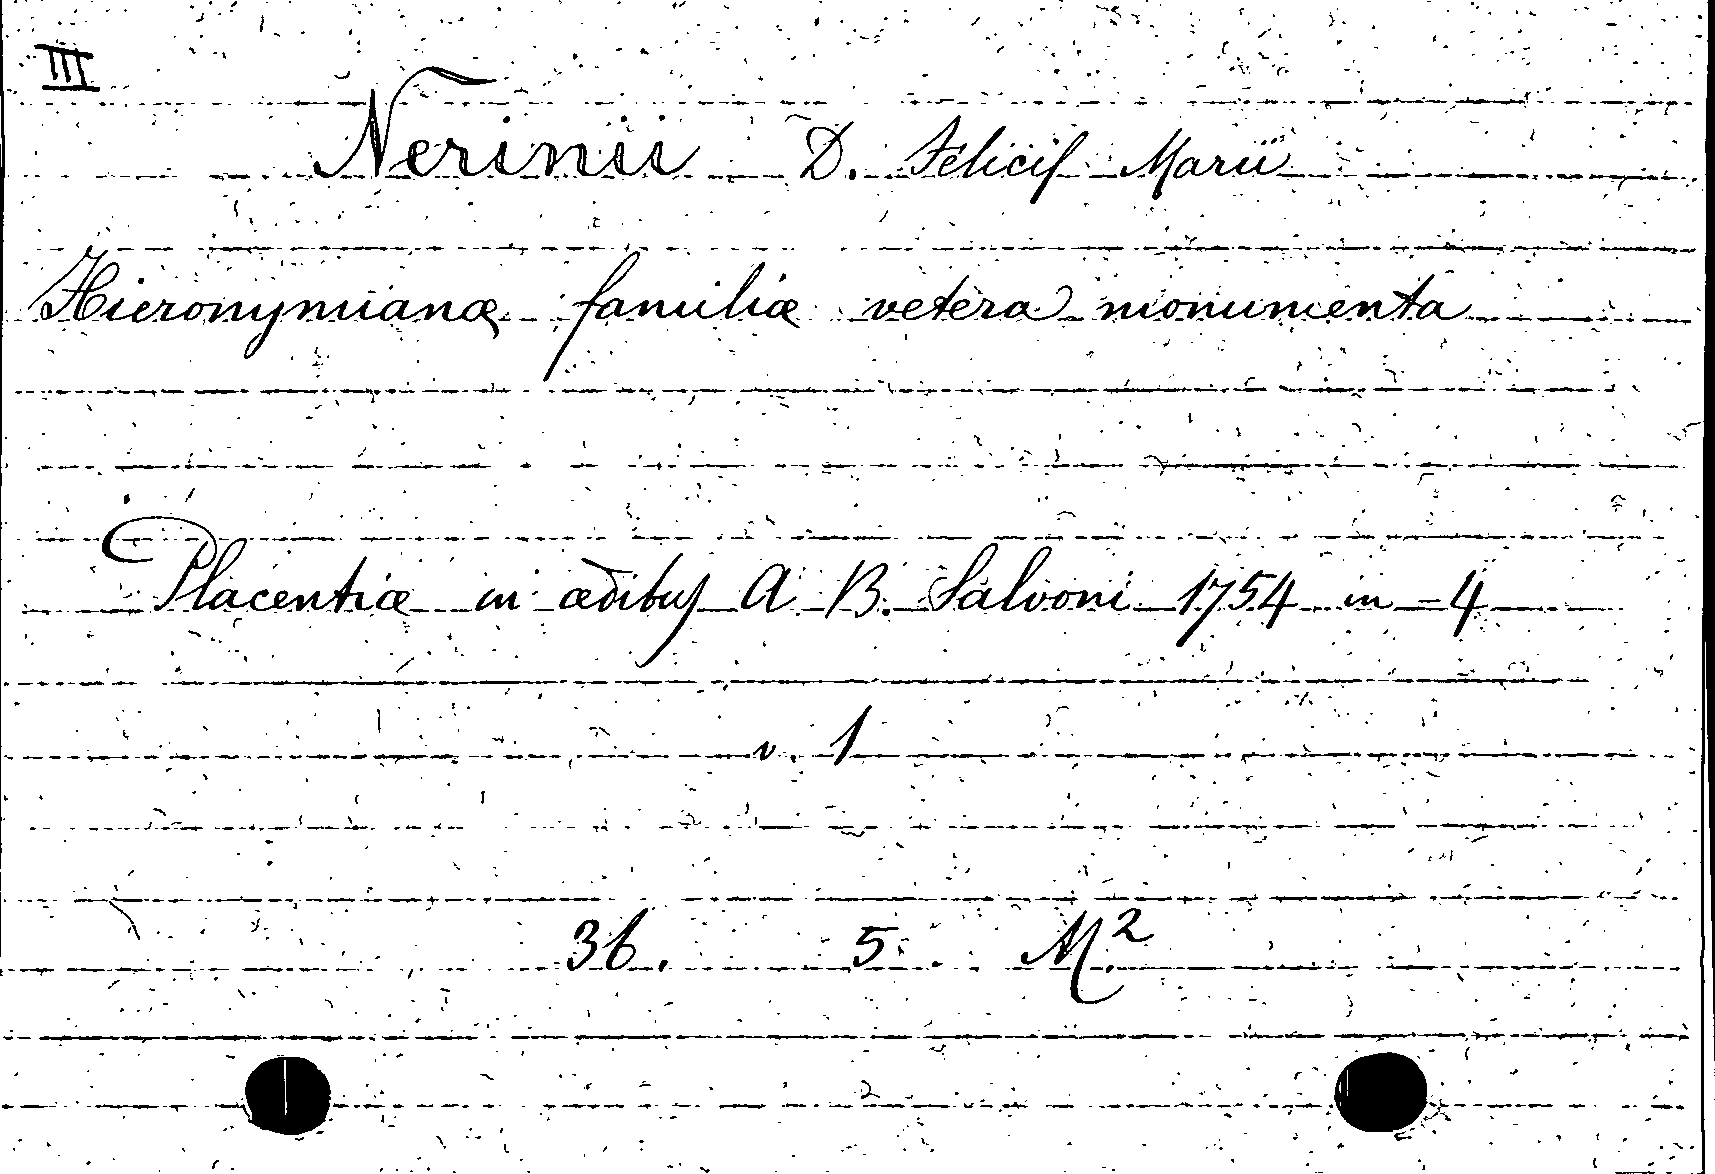 III
Nerinii D. Felicis Marii
Hieronymianæ familiæ vetera monumenta
Placentiæ in ædibus A B. Salvoni 1754 in-4
v. 1
36. 5. M.2